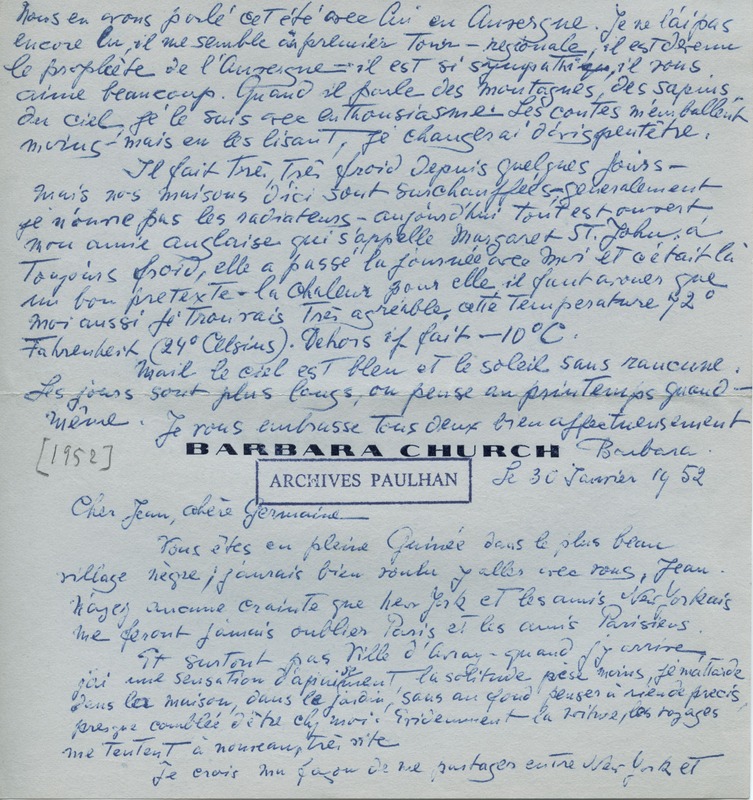 Nous en avons parlé cet été avec lui en Auvergne. Je ne l'ai pas
encore lu, il me semble au premier Tour - régionale, il est devenu
le prophète de l'Auvergne - il est si sympathique, il vous
aime beaucoup. Quand il parle des montagnes, des sapins,
du ciel je le suis avec enthousiasme. Les contes m'emballent
moins - mais en les lisant, je changerai d'avis peutêtre.
Il fait très, très froid depuis quelques jours -
mais nos maisons d'ici sont surchauffées, généralement
je n'ouvre pas les radiateurs - aujourd'hui tout est ouvert
mon amie anglaise qui s'appelle Margaret St. John, a
toujours froid, elle a passé la journée avec moi et c'était là
un bon prétexte - la chaleur pour elle il faut avouer que
moi aussi je trouvais très agréable, cette température 72°
Fahrenheit (24° Celsius). Dehors il fait -10°C.
Mais le ciel est bleu et le soleil sans rancune.
Les jours sont plus longs, on pense au printemps quand -
même. Je vous embrasse tous deux bien affectueusement
Barbara.
BARBARA CHURCH
[1952]
ARCHIVES PAULHAN
Le 30 Janvier 1952
Cher Jean, chère Germaine
Vous êtes en pleine Guinée dans le plus beau
village nègre; j'aurais bien voulu y aller avec vous, Jean.
N'ayez aucune crainte que New York et les amis New Yorkais
me feront jamais oublier Paris et les amis Parisiens.
Et surtout pas Ville d'Avray - quand j'y arrive,
j'ai une sensation d'apaisement la solitude pèse moins, je m'attarde
dans la maison, dans le jardin, sans au fond penser à rien de précis,
presque comblée d'être chez moi. Evidemment la voiture, les voyages
me tentent à nouveau, très vite
Je crois ma façon de me partager entre New York et